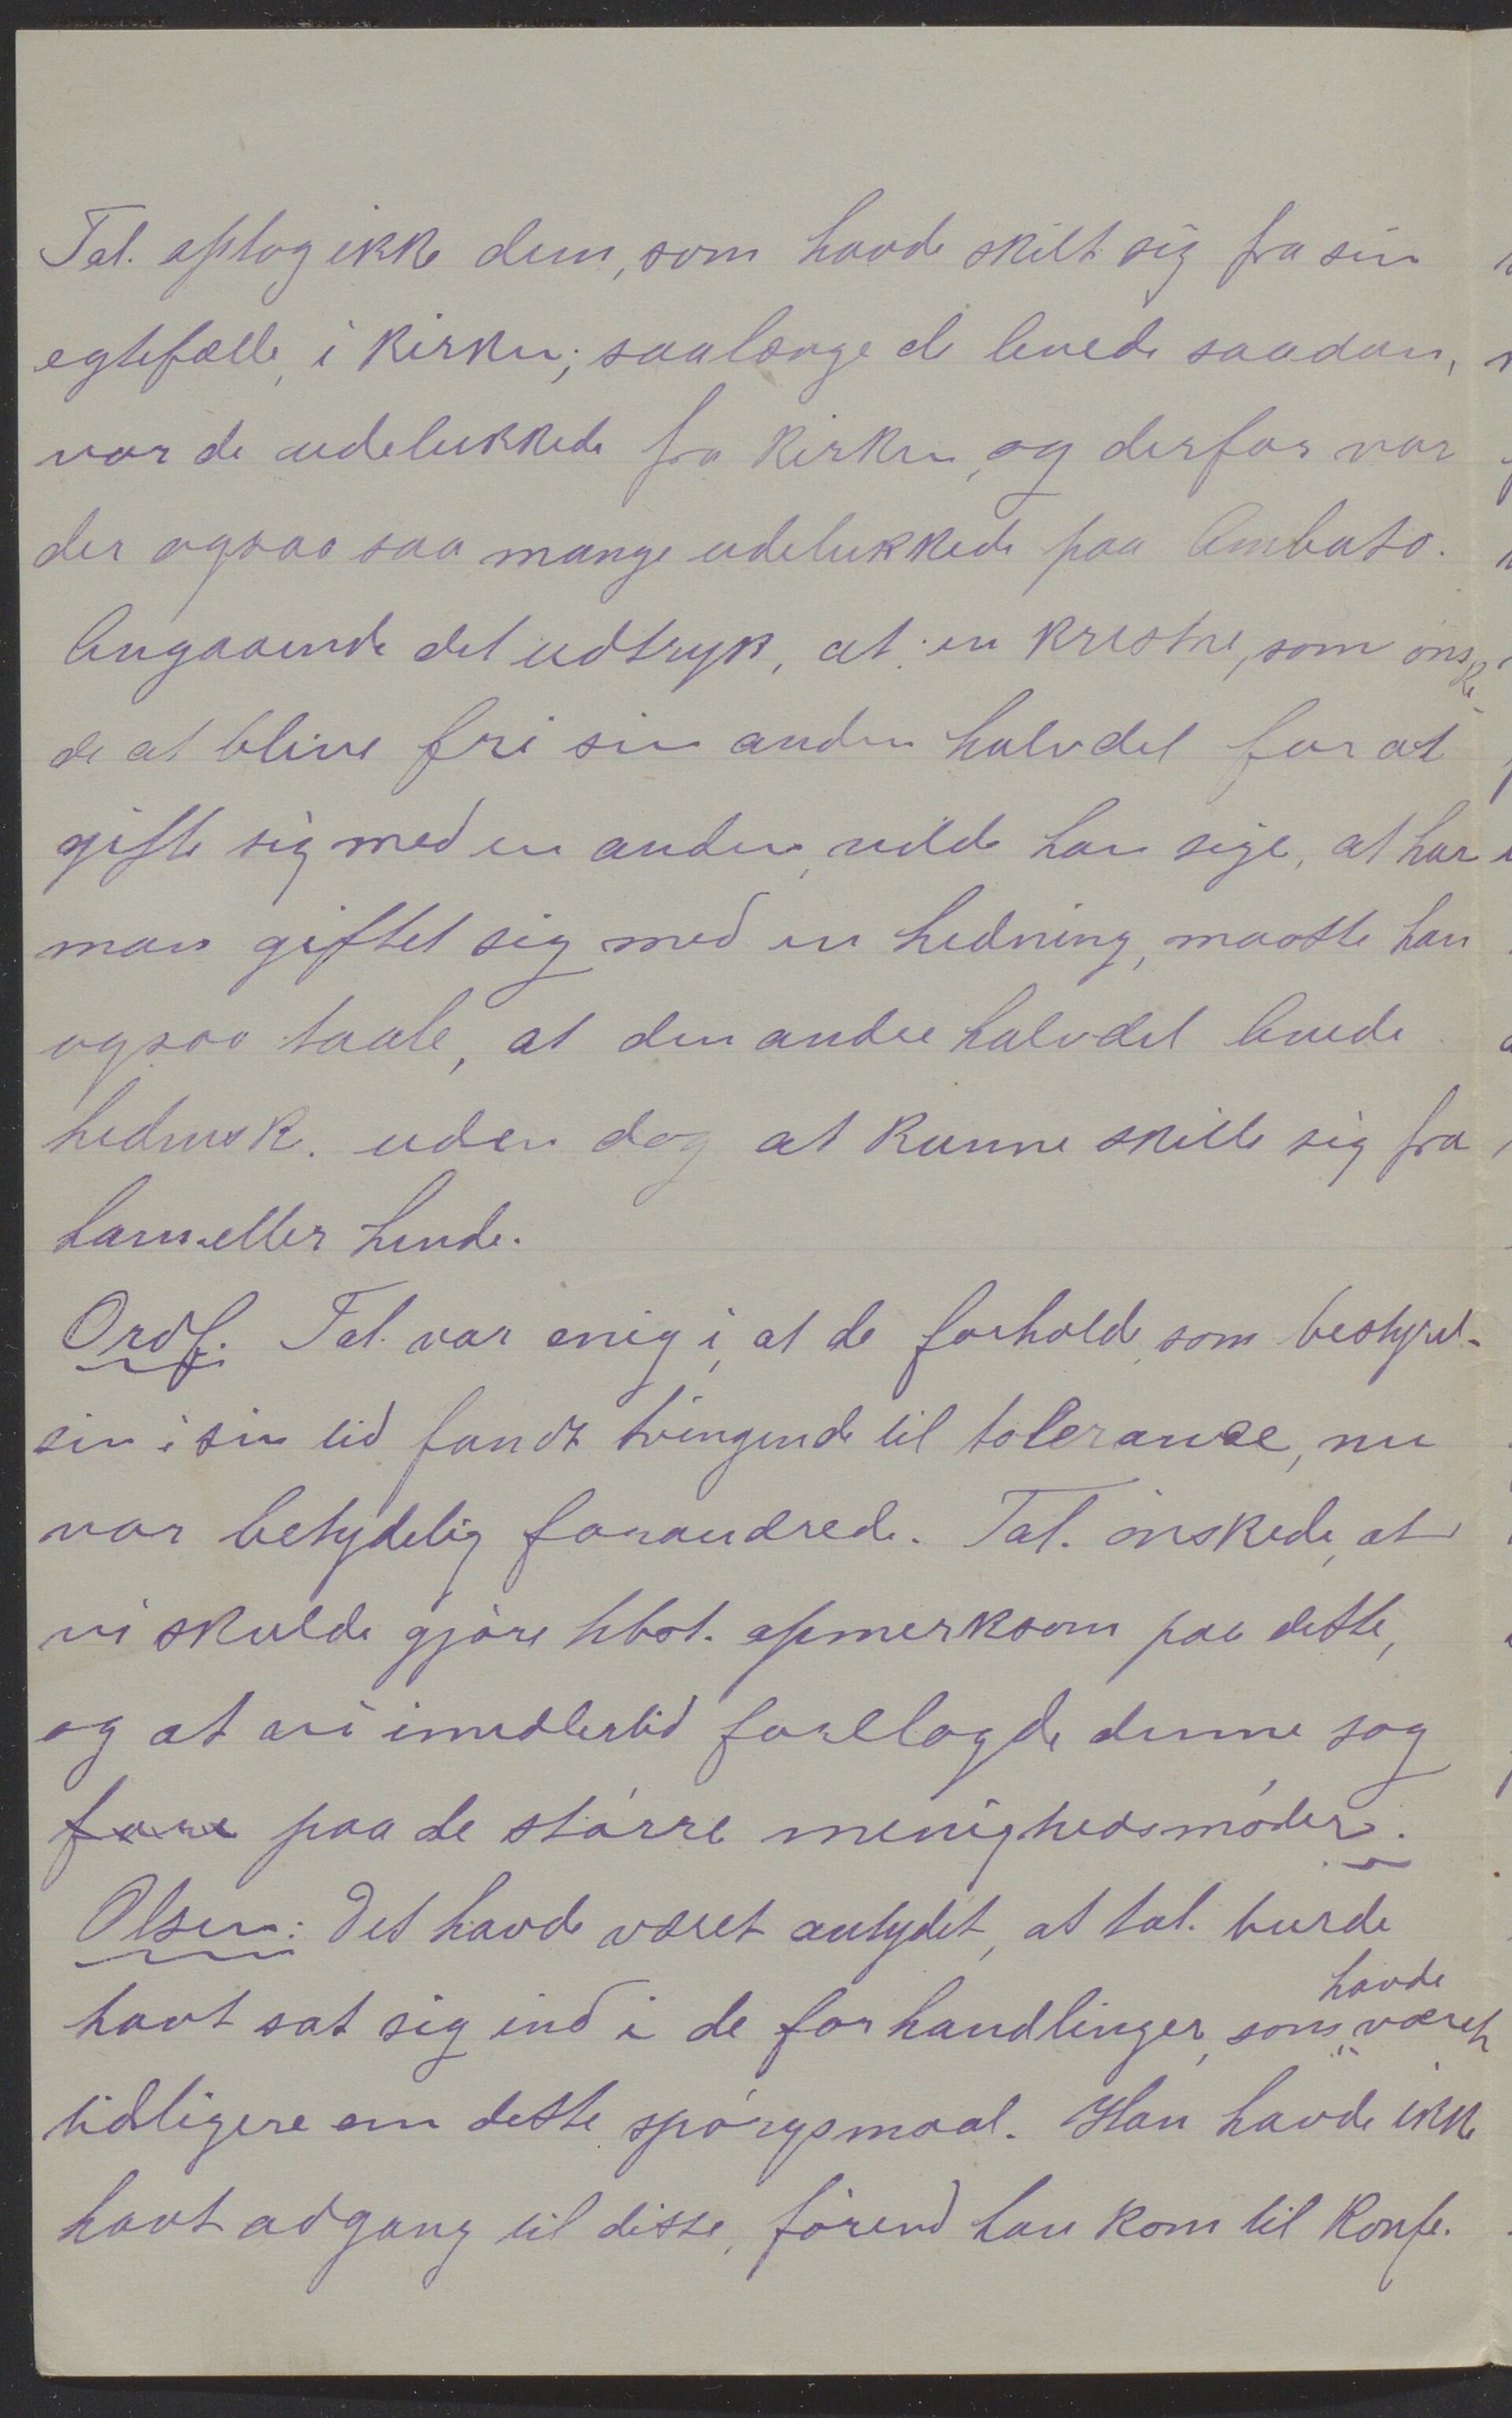 Tal. optog ikke dem, som havde skilt sig fra sin
egtefælle, i kirken; saalænge de levede saadan,
var de udelukkede fra kirken, og derfor var
der ogsaa saa mange udelukkede paa Ambato.
Angaaende det udtryk, at en kristne, som ønske
de at blive fri sin anden halvdel for at
gifte sig med en anden, vilde han sige, at har
man giftet sig med en hedning, maatte han
ogsaa taale, at den andre halvdel levede
hedensk. uden dog at kunne skille sig fra
ham eller hende.
Ordf. Tal. var enig i, at de forholde, som bestyrel-
sen i sin tid fandt tvingende til tolerance, nu
var betydelig forandrede. Tal. ønskede, at
vi skulde gjøre hbst. opmerksom paa dette,
og at vi imidlertid forelagde denne sag
fore paa de større menighedsmøder.
Olsen: Det havde været antydet, at tal. burde
havt sat sig ind i de forhandlinger, som havde været
tidligere om dette spørgsmaal. Han havde ikke
havt adgang til disse, førend han kom til Konf.